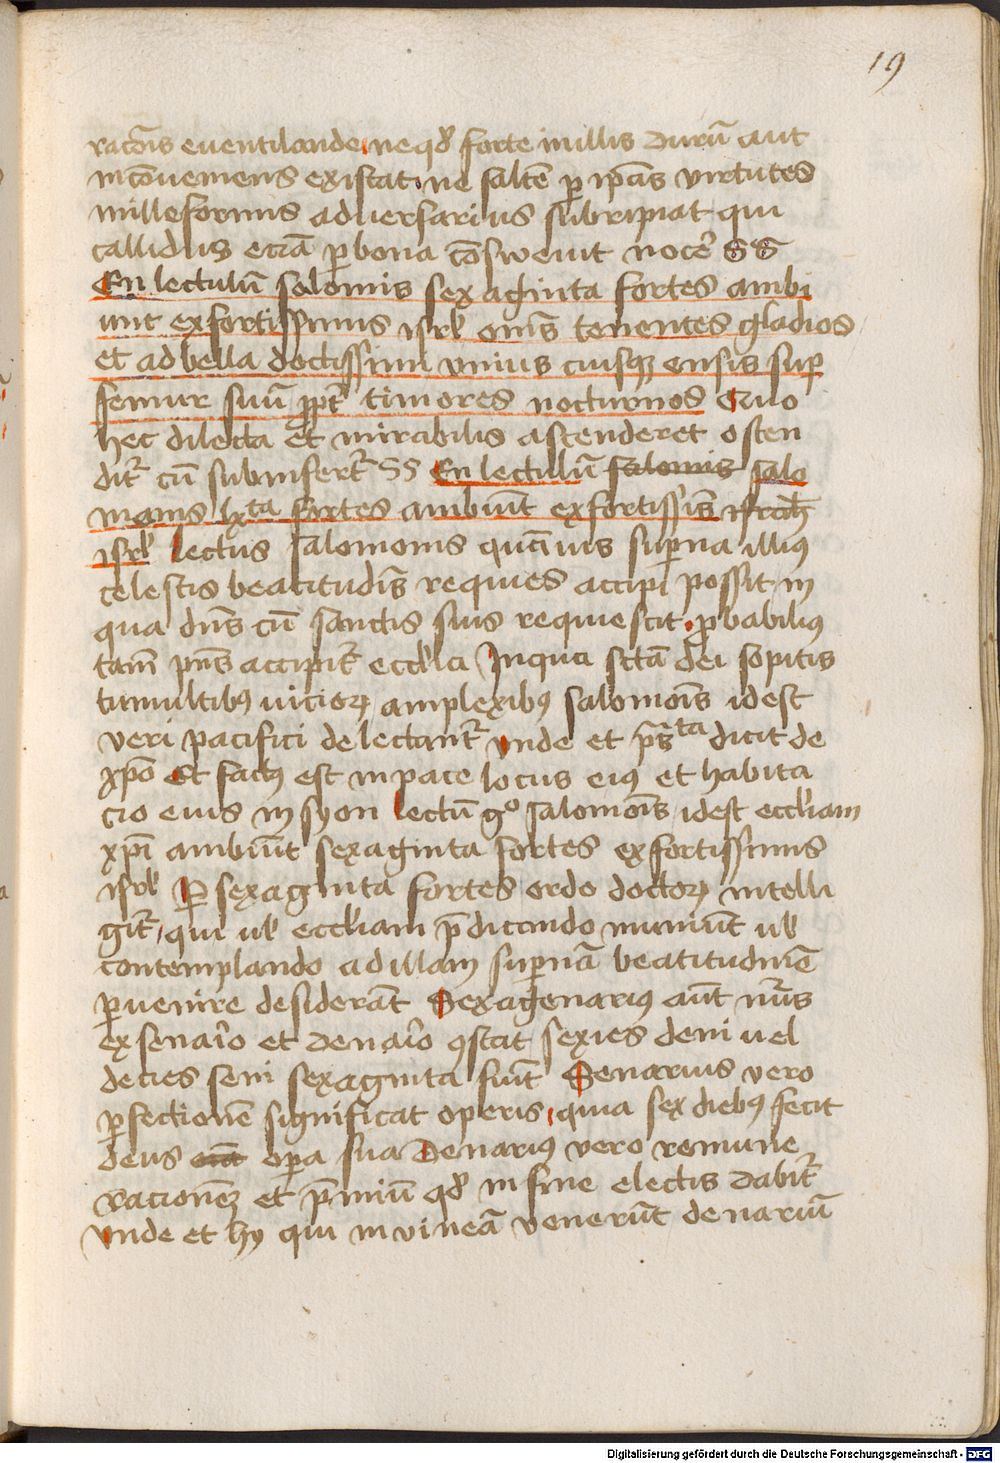 19
rac̄onis euentilande ne qd̕ forte in illis durū aut
incōueniens existat ne saltē ꝑ ip̄as virtutes
milleformis aduersarius subripiat qui
callidus eciā ꝑ bona cōsweuit nocē SS
En lectulū salomis sexaginta fortes ambi
unt ex fortissimis isrl̕ om̄s tenentes gladios
et ad bella doctissimi vnius cuiusqꝫ ensis suꝑ
femur suū ꝓpt̕ timores nocturnos Quo
hec dilecta et mirabilis ascenderet osten
dit̕ cū subinfert̕ SS En lectulū salomis salo
monis lxta fortes ambiūt ex fortissīs israh̕
isrl̕ lectus salomonis quāuis suꝑna illiꝰ
celestis beatitudīs requies accipi possit in
qua dn̄s cū sanctis suis requiescit ꝓbabiliꝰ
tam̄ pn̄s accipit̕ eccl̕ia In qua sctā dei sopitis
tumultibꝰ uicioꝝ amplexibꝰ salomōis idest
veri pacifici delectant̕ vnde et p̄sta dicit de
xp̄o Et factꝰ est in pace locus eiꝰ et habita
cio eius in syon lectū gͦ salomōis idest eccl̕iam
xp̄i ambiūt sexaginta fortes ex fortissimis
isrl̕ Per sexaginta fortes ordo doctoꝝ intelli
git̕ qui ul̕ eccl̕iam p̄dicando muniūt ul̕
contemplando ad illam suꝑnā beatitudinē
ꝑuenire desiderāt Sexagenariꝰ aūt nūs
ex senar̄io et denar̄io ꝯstat sexies deni uel
decies seni sexaginta sūt Senarius vero
ꝑfectionē significat operis quia sex diebꝰ fecit
deus oīa oꝑa sua Denariꝰ vero remune
racionēꝫ et p̄miū qd̕ in fine electis dabit̕
vnde et hy qui in vineā venerūt denariū
Digitalisierung gefördert durch die Deutsche Forschungsgemeinschaft - DFG